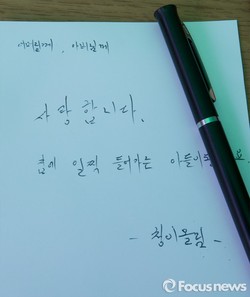 어머님께, 아버님께
사랑합니다.
집에 일찍 들어가는 아들이
- 청이올림 -
Focusnews